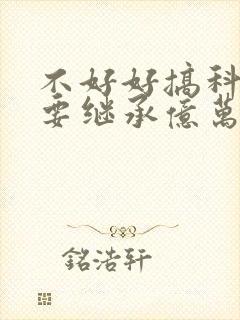 不好好搞科
要继承億萬
銘浩轩